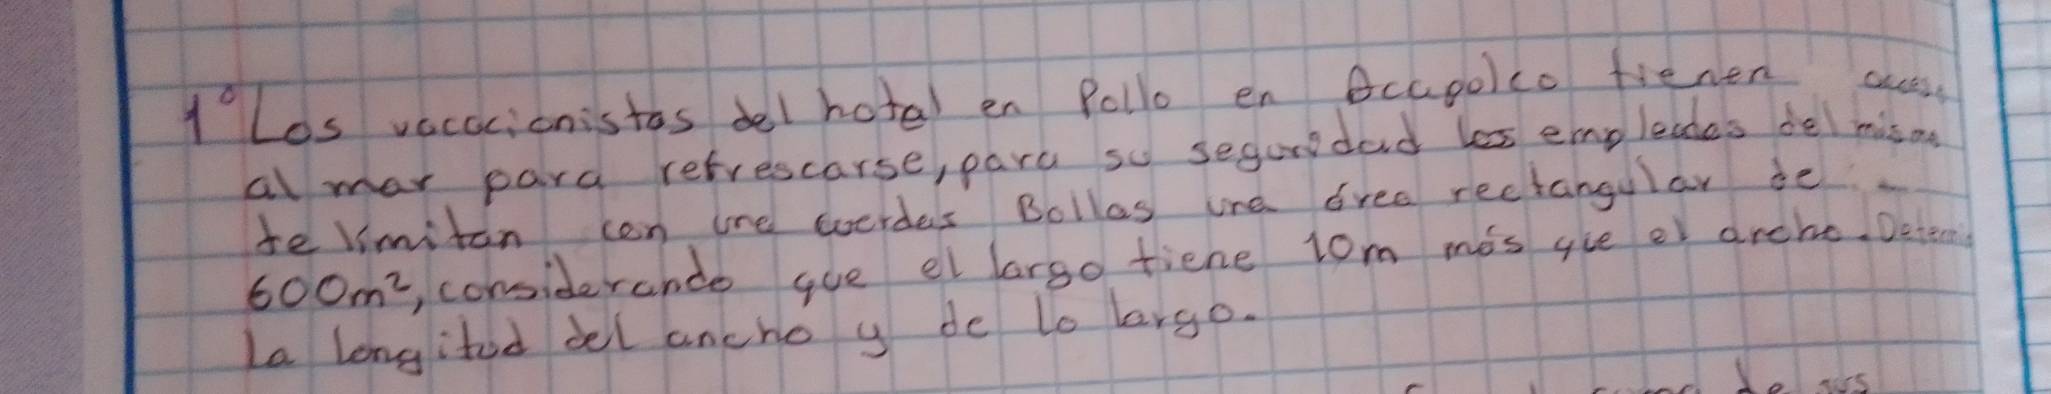 1° Los vacacionistas del hotel en Pollo en Acapolco tienen acces
al mar para refrescarse, para su seguridad los empleados del mismo
te limitan con una cuerdas Bollas una área rectangular de
600m², considerando que el largo tiene 10m más que el ancho. Determi
la longitud del ancho y de lo largo.
de sus